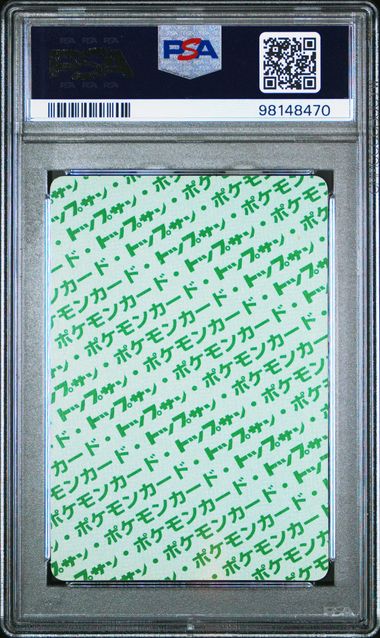 PSA
PSA
98148470
トップサン・ポケモン
ポケモンカード・トップサン・ポケモン
ポケモンカード・トップサン・ポケモン
トップサン・ポケモンカード・トップサン
トップサン・ポケモンカード・トップサン
ポケモンカード・トップサン・ポケモンカード
ポケモンカード・トップサン・ポケモンカード
ポケモンカード・トップサン
ポケモンカード
PSA